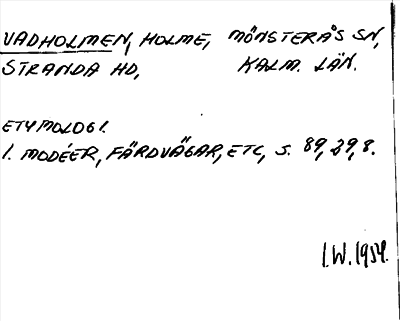 VADHOLMEN, HOLME, MÖNSTERÅS SN,
STRANDA HD, KALM. LÄN.
ETYMOLOGI.
I. MODÉER, FÄRDVÄGAR, ETC, S. 89, 29, 8.
I.W. 1954.